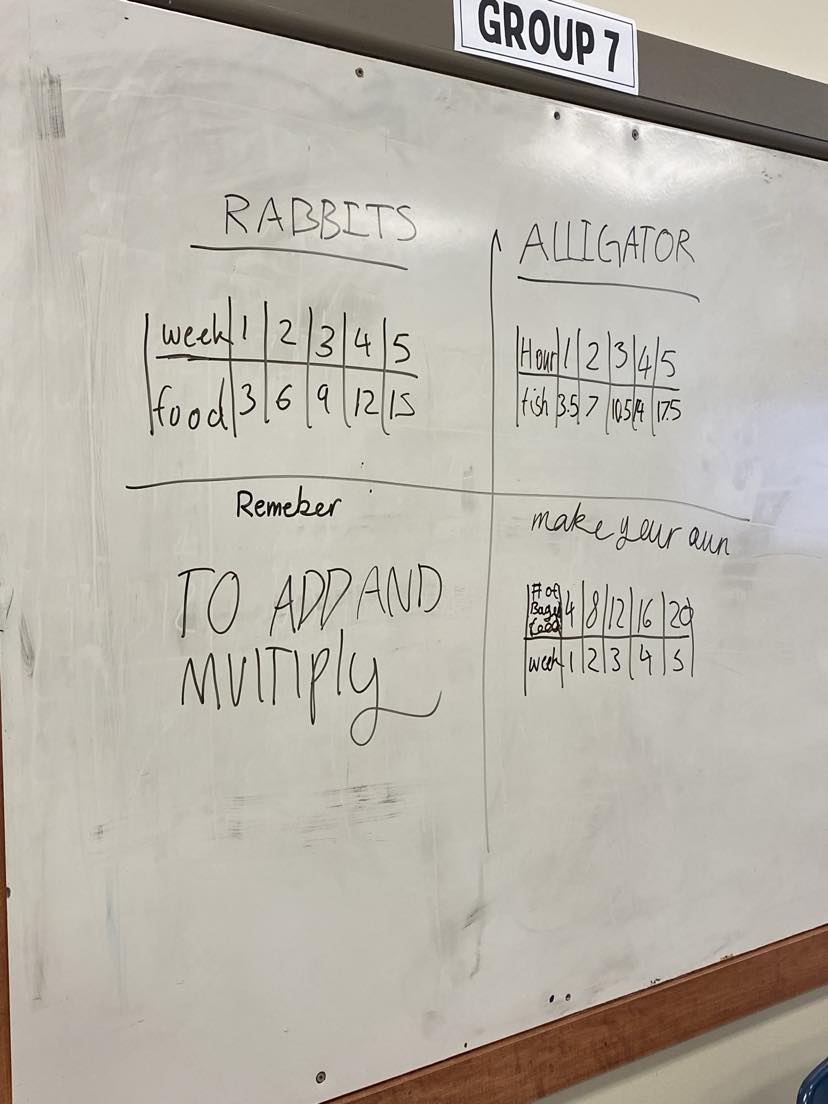 GROUP 7
RABBITS
week 1 2 3 4 5
food 3 6 9 12 15
ALLIGATOR
Hour 1 2 3 4 5
fish 3.5 7 10.5 14 17.5
Remeber
TO ADD AND
MULTIPLY
make your own
# of
Bags
food
4 8 12 16 20
week 1 2 3 4 5